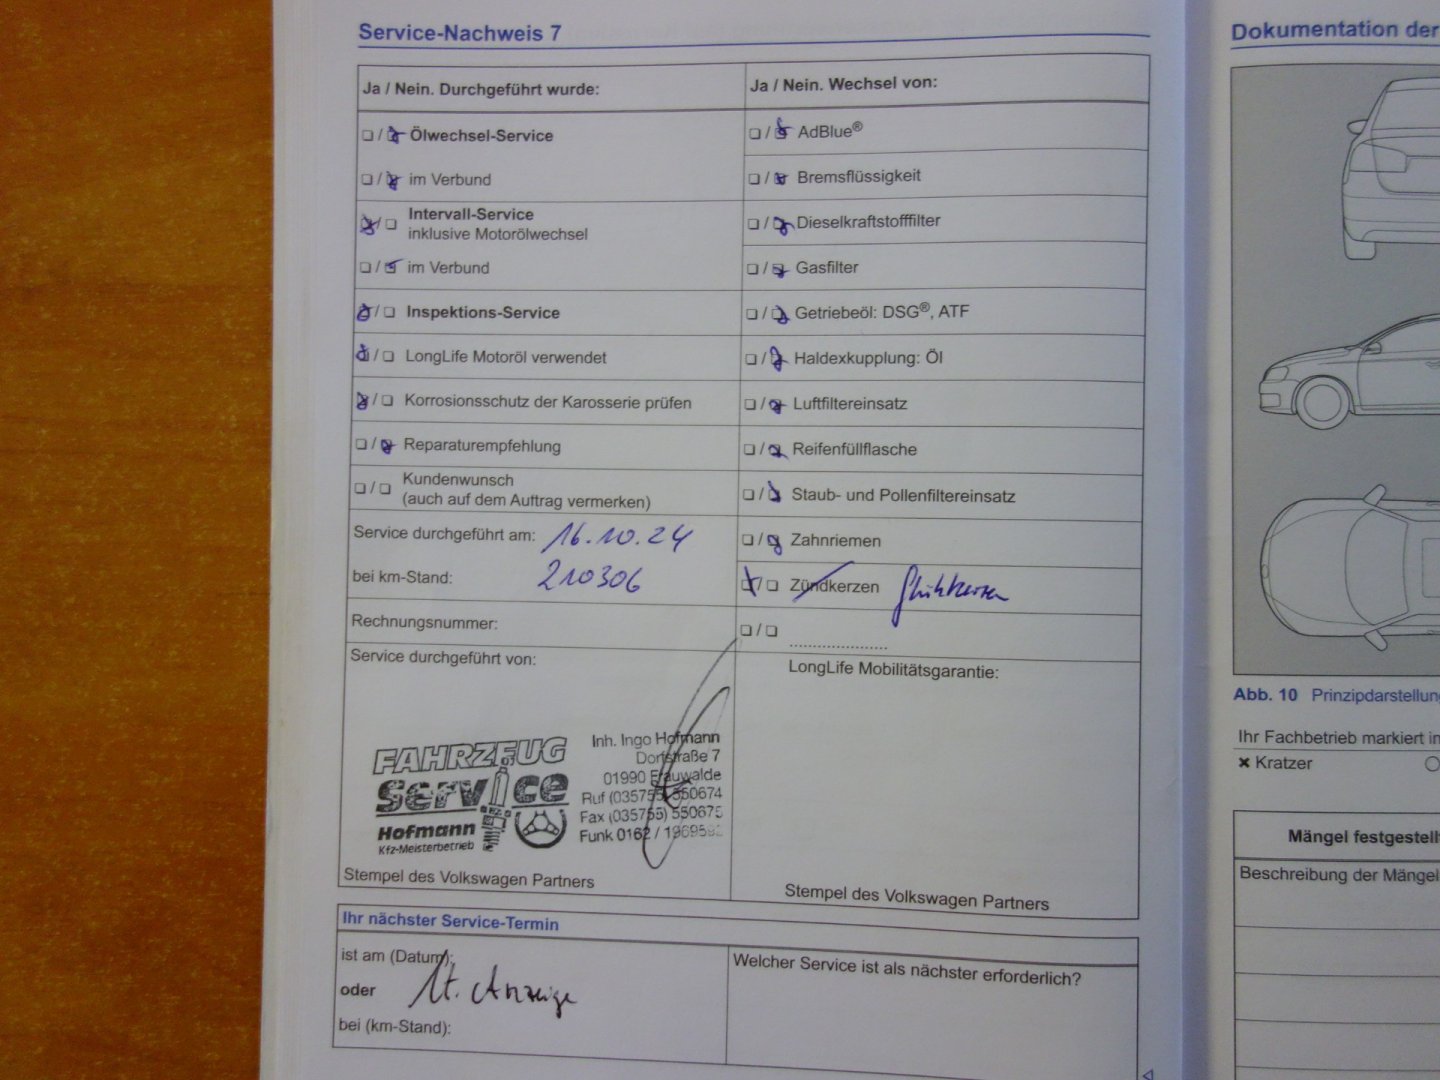 Service-Nachweis 7
Ja / Nein. Durchgeführt wurde:
Ölwechsel-Service
im Verbund
Intervall-Service
inklusive Motorölwechsel
im Verbund
Inspektions-Service
LongLife Motoröl verwendet
Korrosionsschutz der Karosserie prüfen
Reparaturempfehlung
Kundenwunsch
(auch auf dem Auftrag vermerken)
Service durchgeführt am: 16.10.24
bei km-Stand: 210306
Rechnungsnummer:
Service durchgeführt von:
FAHRZEUG
Service
Hofmann
Kfz-Meisterbetrieb
Inh. Ingo Hofmann
Dorfstraße 7
01990 Frauwalde
Ruf (035755) 550674
Fax (035755) 550675
Funk 0162 /
Stempel des Volkswagen Partners
Ja / Nein. Wechsel von:
AdBlue®
Bremsflüssigkeit
Dieselkraftstofffilter
Gasfilter
Getriebeöl: DSG®, ATF
Haldexkupplung: Öl
Luftfiltereinsatz
Reifenfüllflasche
Staub- und Pollenfiltereinsatz
Zahnriemen
Zündkerzen Glühkerzen
LongLife Mobilitätsgarantie:
Stempel des Volkswagen Partners
Ihr nächster Service-Termin
ist am (Datum):
oder
lt. Anzeige
bei (km-Stand):
Welcher Service ist als nächster erforderlich?
Dokumentation der
Abb. 10 Prinzipdarstellung
Ihr Fachbetrieb markiert in
✖ Kratzer
Mängel festgestell
Beschreibung der Mängel